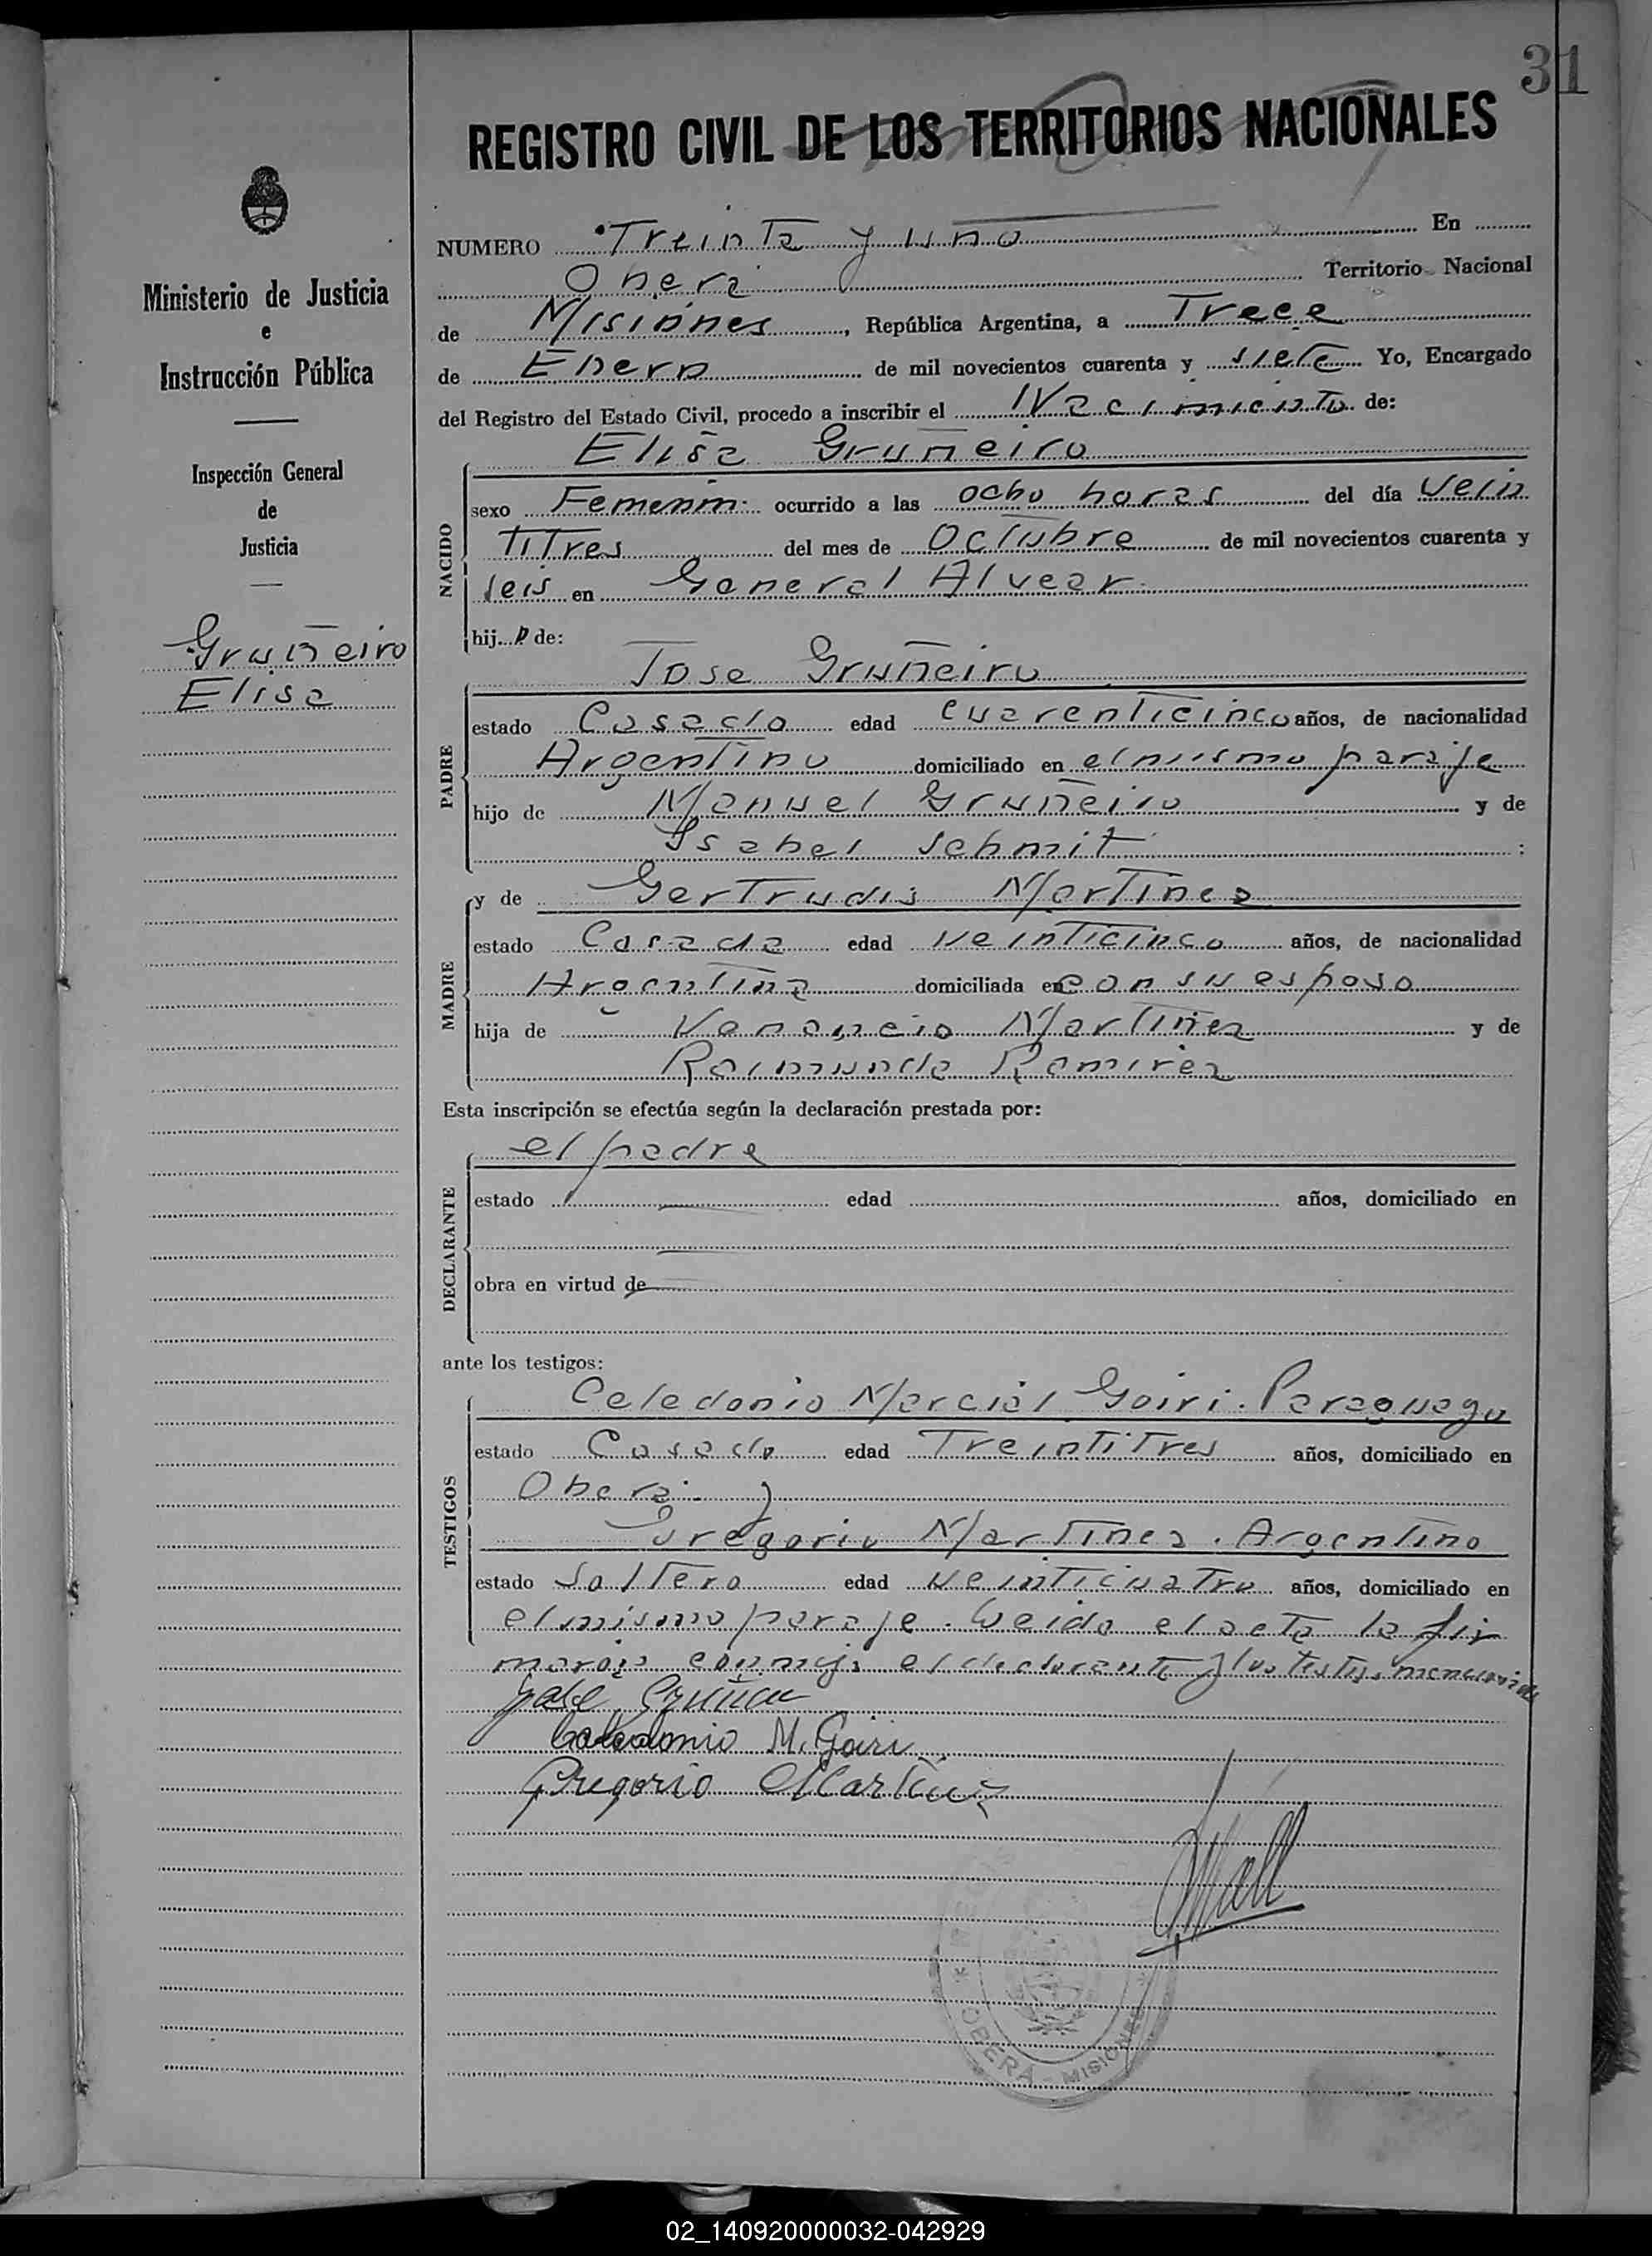 31
REGISTRO CIVIL DE LOS TERRITORIOS NACIONALES
Ministerio de Justicia
e
Instrucción Pública
Inspección General
de
Justicia
Gruñeiro
Elisa
NUMERO Treinta y uno En
Oberá Territorio Nacional
de Misiones, República Argentina, a Trece
de Enero de mil novecientos cuarenta y siete Yo, Encargado
del Registro del Estado Civil, procedo a inscribir el Nacimiento de:
Elisa Gruñeiro
NACIDO
sexo Femenin. ocurrido a las ocho horas del día Vein
titres del mes de Octubre de mil novecientos cuarenta y
seis en General Alvear
hij de:
Jose Gruñeiro
PADRE
estado Casado edad cuarenticinco años, de nacionalidad
Argentino domiciliado en el mismo paraje
hijo de Manuel Gruñeiro y de
Ysabel Schmit :
y de Gertrudis Martinez
MADRE
estado Casada edad veinticinco años, de nacionalidad
Argentina domiciliada en con su esposo
hija de Venancio Martinez y de
Raimunda Ramirez
Esta inscripción se efectúa según la declaración prestada por:
el padre
DECLARANTE
estado edad años, domiciliado en
obra en virtud de
ante los testigos:
Celedonio Marcial Goiri. Paraguayo
TESTIGOS
estado Casado edad Treintitres años, domiciliado en
Oberá y
Gregorio Martinez. Argentino
estado Soltero edad veinticuatro años, domiciliado en
el mismo paraje. Leida el acta la fir
maron conmigo el declarante y los testigs mencionados
José
Celedonio M. Goiri
Gregorio Martinez
OBERA - MISIONES
02_140920000032-042929